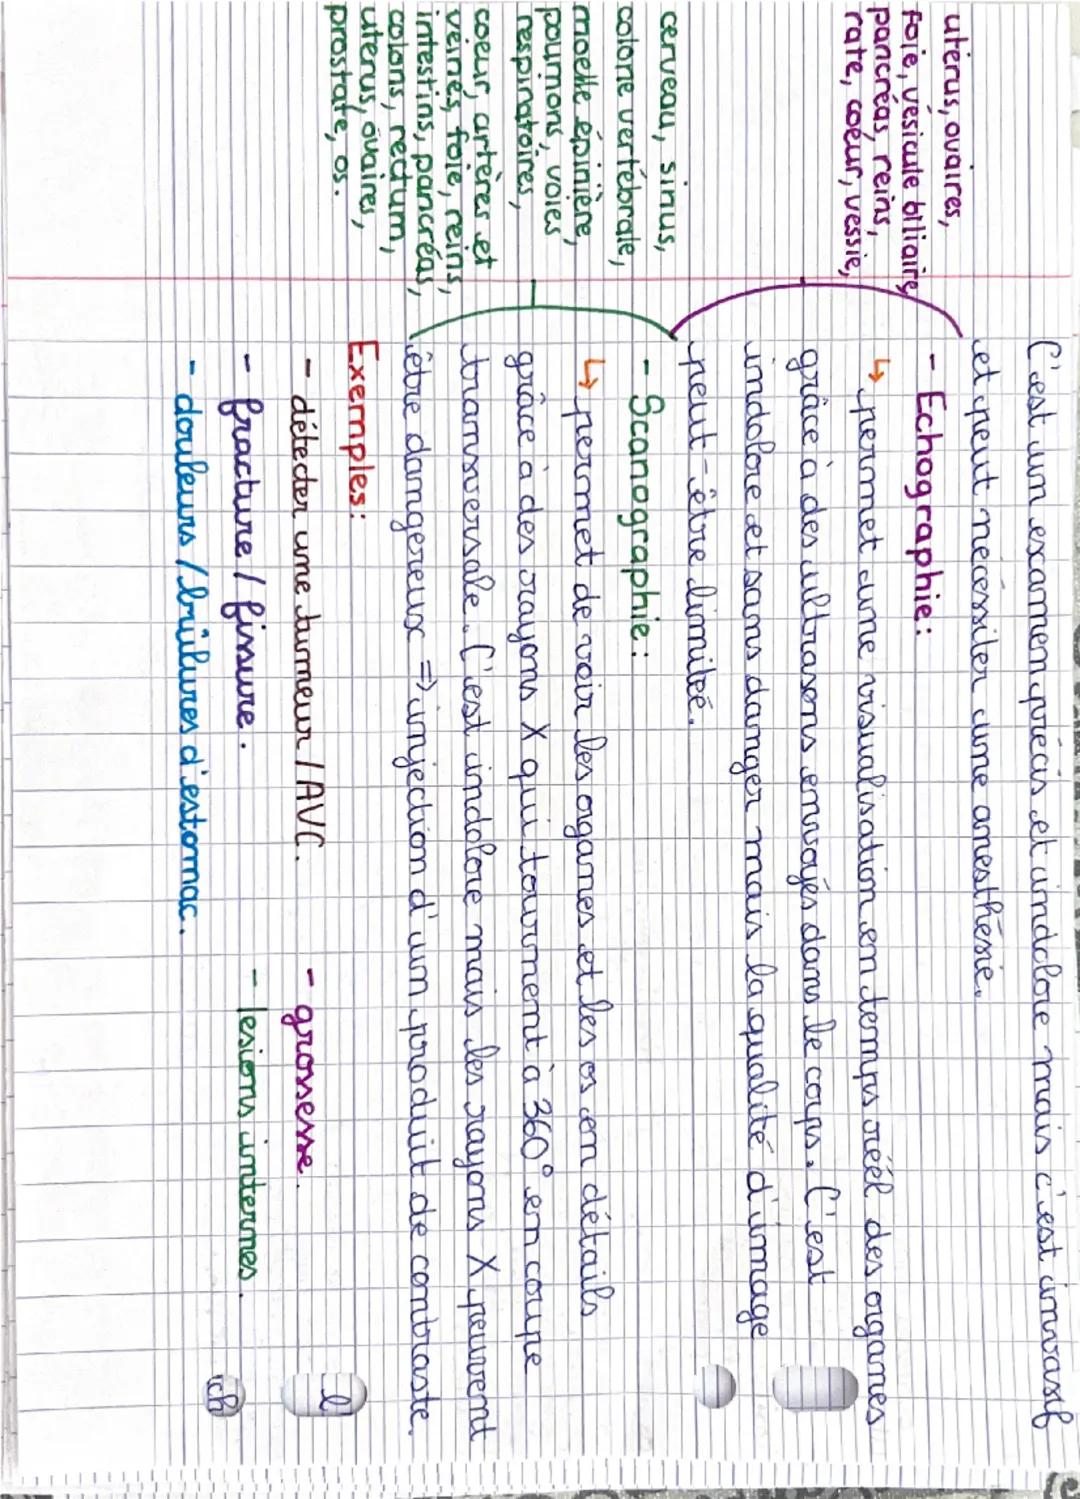 C'est un examen précis et indolore mais c'est invasif
et peut nécéssiter une anesthésie.
utérus, ovaires,
foie, vésicule biliaire,
pancréas, reins,
rate, coeur, vessie,
- Echographie:
↳ permet une visualisation en temps réél des organes
grâce à des ultrasons envoyés dans le corps. C'est
indolore et sans danger mais la qualité d'image
peut-être limiteé.
cerveau, sinus,
colone vertébrale,
moelle épinière,
poumons, voies
respiratoires,
coeur, artères et
veines, foie, reins,
intestins, pancréas,
colons, rectum,
uterus, ovaires,
prostate, os.
- Scanographie:
↳ permet de voir les organes et les os en détails
grâce à des rayons X qui tournent à 360° en coupe
transversale. C'est indolore mais les rayons X peuvent
être dangereux => injection d'un produit de contraste.
Exemples:
- détecter une tumeur / AVC.
- grossesse.
- fracture / fissure.
- lesions internes.
- douleurs / brûlures d'estomac.